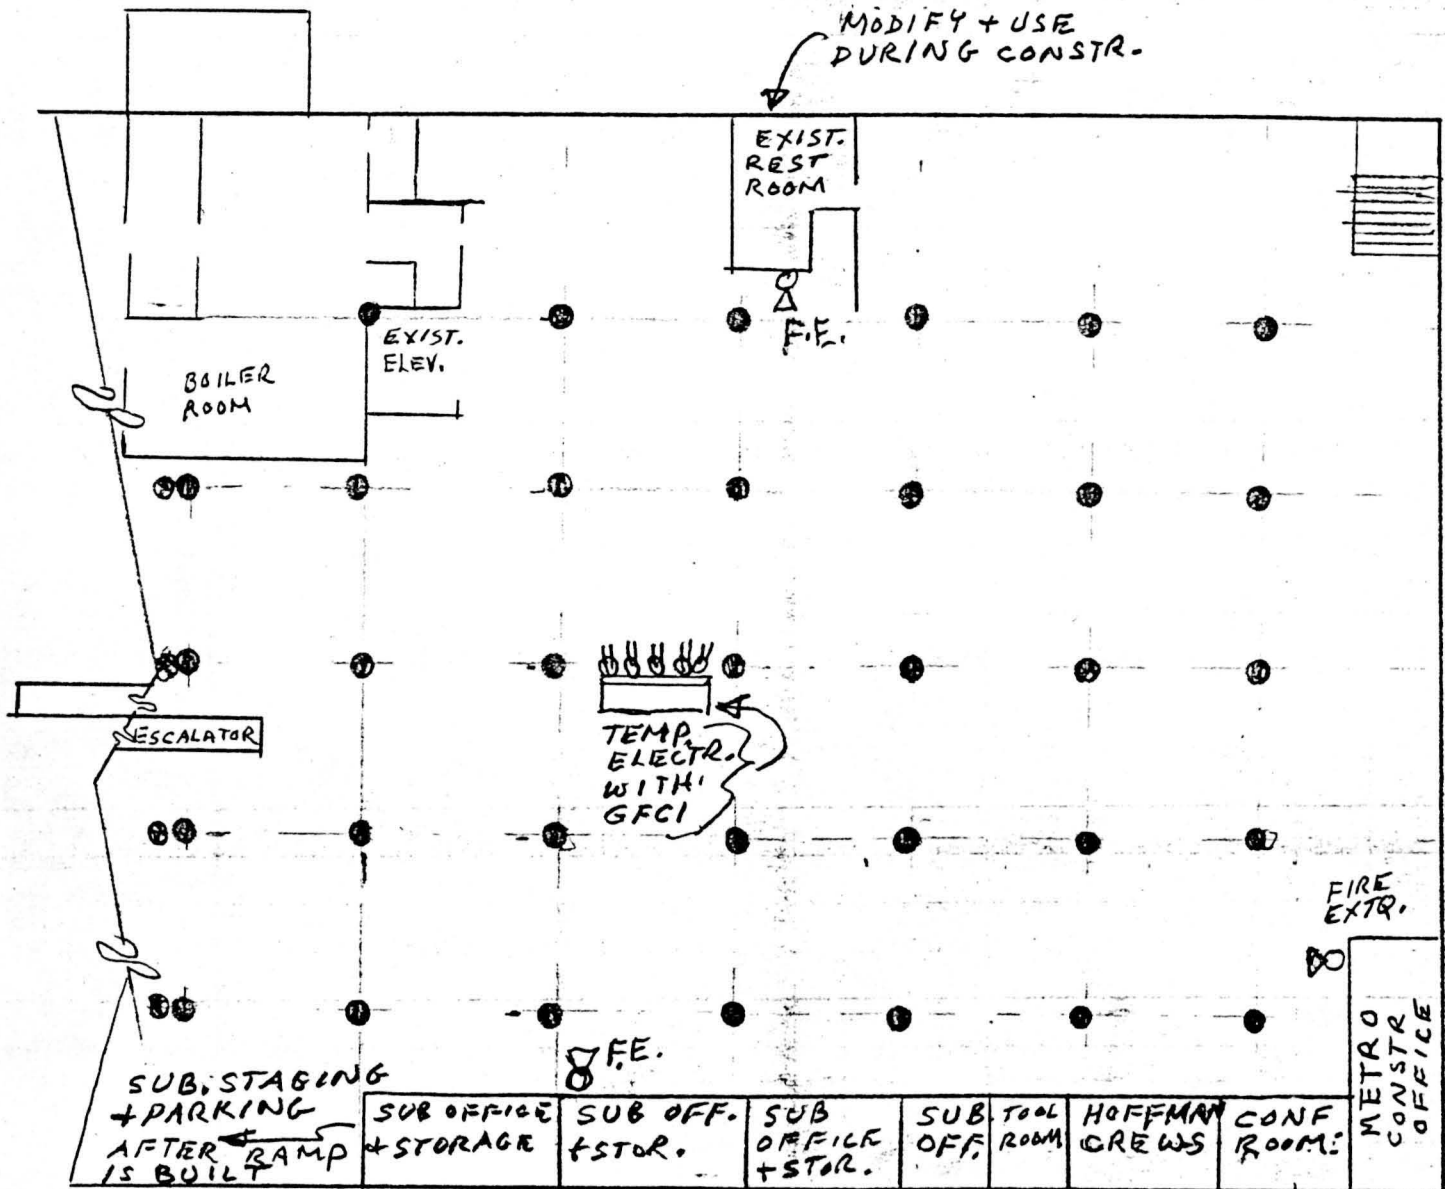 MODIFY + USE
DURING CONSTR.
EXIST.
REST
ROOM
F.E.
EXIST.
ELEV.
BOILER
ROOM
ESCALATOR
TEMP.
ELECTR.
WITH
GFCI
FIRE
EXTQ.
F.E.
SUB. STAGING
+ PARKING
AFTER RAMP
IS BUILT
SUB OFFICE
+ STORAGE
SUB OFF.
+ STOR.
SUB
OFFICE
+ STOR.
SUB
OFF.
TOOL
ROOM
HOFFMAN
CREWS
CONF
ROOM:
METRO
CONSTR
OFFICE